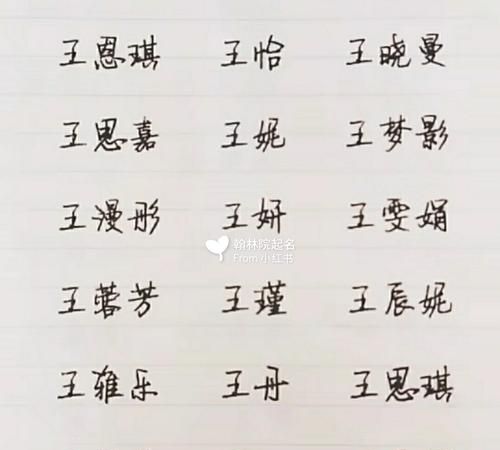 王恩琪 王怡 王晓曼
王思嘉 王妮 王梦影
王漫彤 王妍 王雯娟
翰林院起名
From 小红书
王蓉芳 王瑾 王辰妮
王雅乐 王丹 王思琪